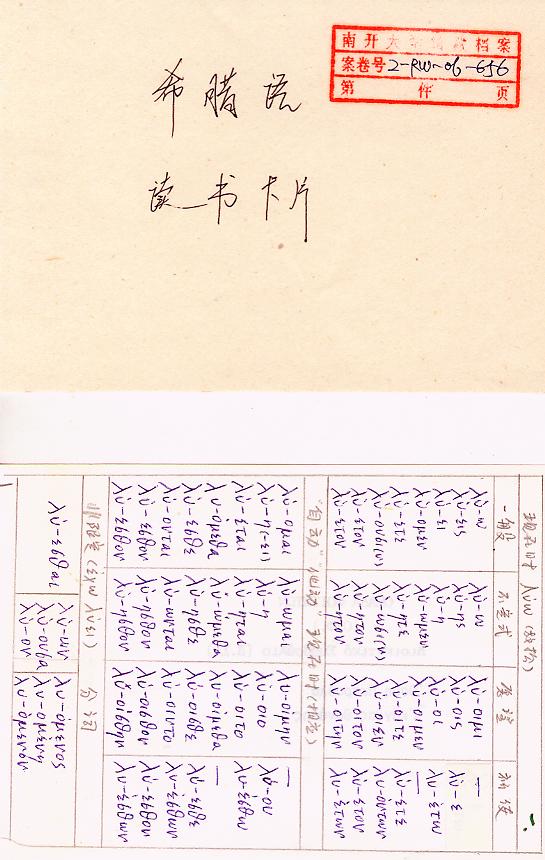 南开大学 档案
案卷号 2-RW-06-656
第 件 页
希腊语
读书卡片
现在时 λύω (放松)
一般 不定式 愿望
λύ-ω λύ-ω λύ-οιμι —
λύ-εις λύ-ης λύ-οις λύ-ε
λύ-ει λύ-η λύ-οι λυ-έτω
λύ-ομεν λύ-ωμεν λύ-οιμεν —
λύ-ετε λύ-ητε λύ-οιτε λύ-ετε
λύ-ουσι(ν) λύ-ωσι(ν) λύ-οιεν λυ-όντων
λύ-ετον λύ-ητον λύ-οιτον λύ-ετον
λύ-ετον λύ-ητον λυ-οίτην λυ-έτων
现在时
λύ-ομαι λύ-ωμαι λυ-οίμην —
λύ-η(-ει) λύ-η λύ-οιο λύ-ου
λύ-εται λύ-ηται λύ-οιτο λυ-έσθω
λυ-όμεθα λυ-ώμεθα λυ-οίμεθα —
λύ-εσθε λύ-ησθε λύ-οισθε λύ-εσθε
λύ-ονται λύ-ωνται λύ-οιντο λυ-έσθων
λύ-εσθον λύ-ησθον λύ-οισθον λύ-εσθον
λύ-εσθον λύ-ησθον λυ-οίσθην λυ-έσθων
分词
λύ-εσθαι λύ-ων λυ-όμενος
λύ-ουσα λυ-ομένη
λῦ-ον λυ-όμενον